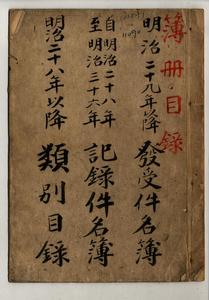 簿冊目録
明治二十九年以降 發受件名簿
自明治二十八年
至明治三十六年 記録件名簿
明治二十八年以降 類別目録